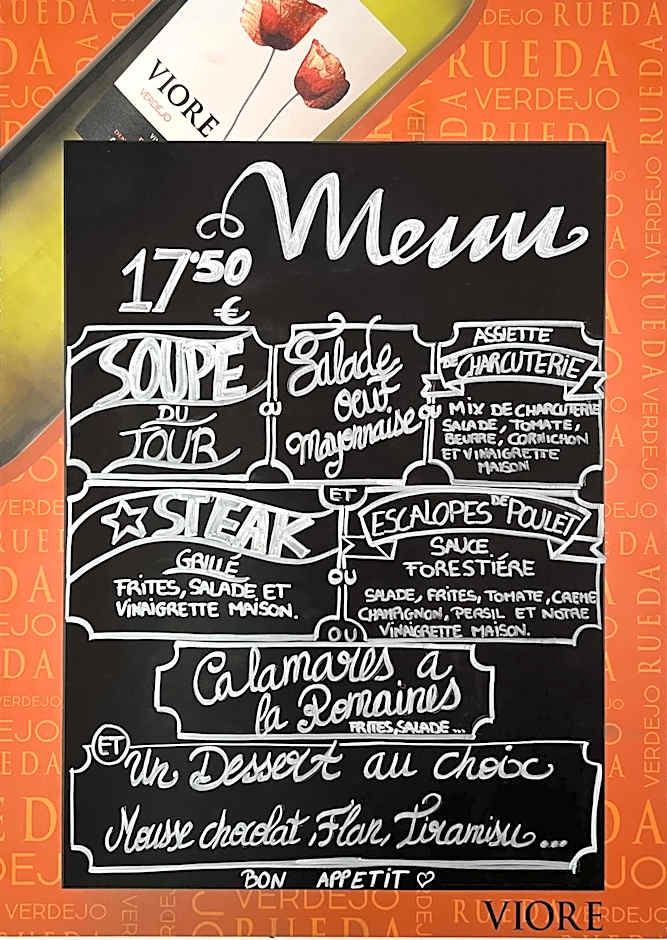 VIORE
VERDEJO
RUEDA
VERDEJO
RUEDA
VERDEJO
RUEDA
Menu
17'50
€
SOUPE
DU
JOUR
OU
Salade
Oeuf
Mayonnaise
OU
ASSIETTE
DE CHARCUTERIE
MIX DE CHARCUTERIE
SALADE, TOMATE,
BEURRE, CORNICHON
ET VINAIGRETTE
MAISON
ET
☆ STEAK
GRILLÉ
FRITES, SALADE ET
VINAIGRETTE MAISON.
OU
ESCALOPES DE POULET
SAUCE
FORESTIÉRE
SALADE, FRITES, TOMATE, CREME
CHAMPIGNON, PERSIL ET NOTRE
VINAIGRETTE MAISON.
OU
Calamares a
la Romaines
FRITES, SALADE...
ET
Un Dessert au choix
Mousse chocolat, Flan, Tiramisu...
BON APPETIT ♡
VERDEJO
RUEDA
VIORE